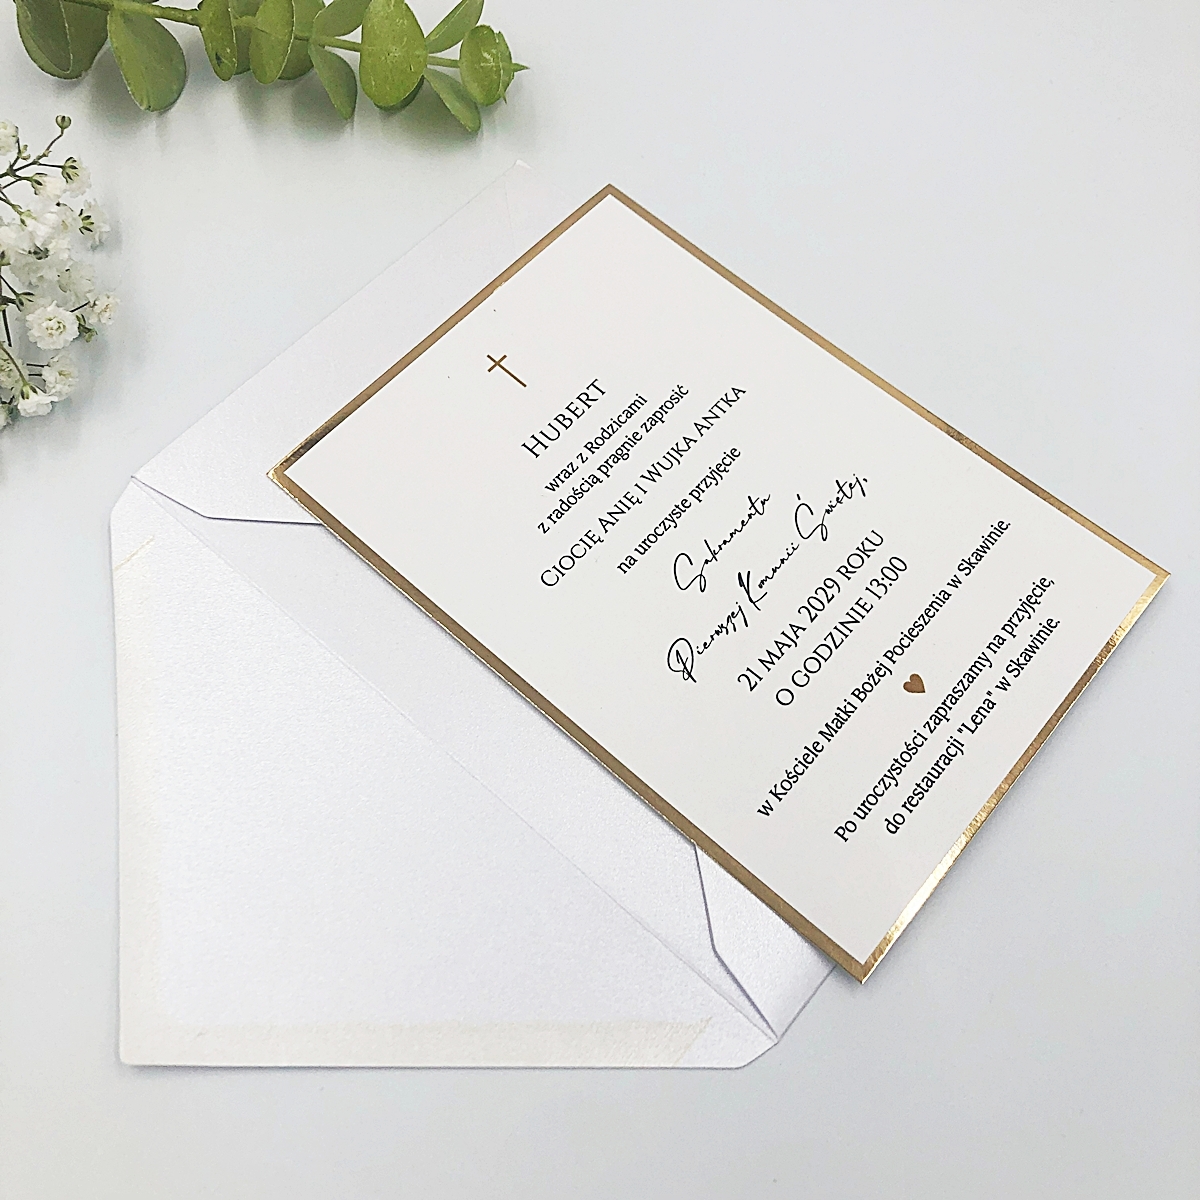 HUBERT
wraz z Rodzicami
z radością pragnie zaprosić
CIOCIĘ ANIĘ I WUJKA ANTKA
na uroczyste przyjęcie
Sakramentu
Pierwszej Komunii Świętej,
21 MAJA 2029 ROKU
O GODZINIE 13:00
w Kościele Matki Bożej Pocieszenia w Skawinie.
Po uroczystości zapraszamy na przyjęcie,
do restauracji "Lena" w Skawinie.